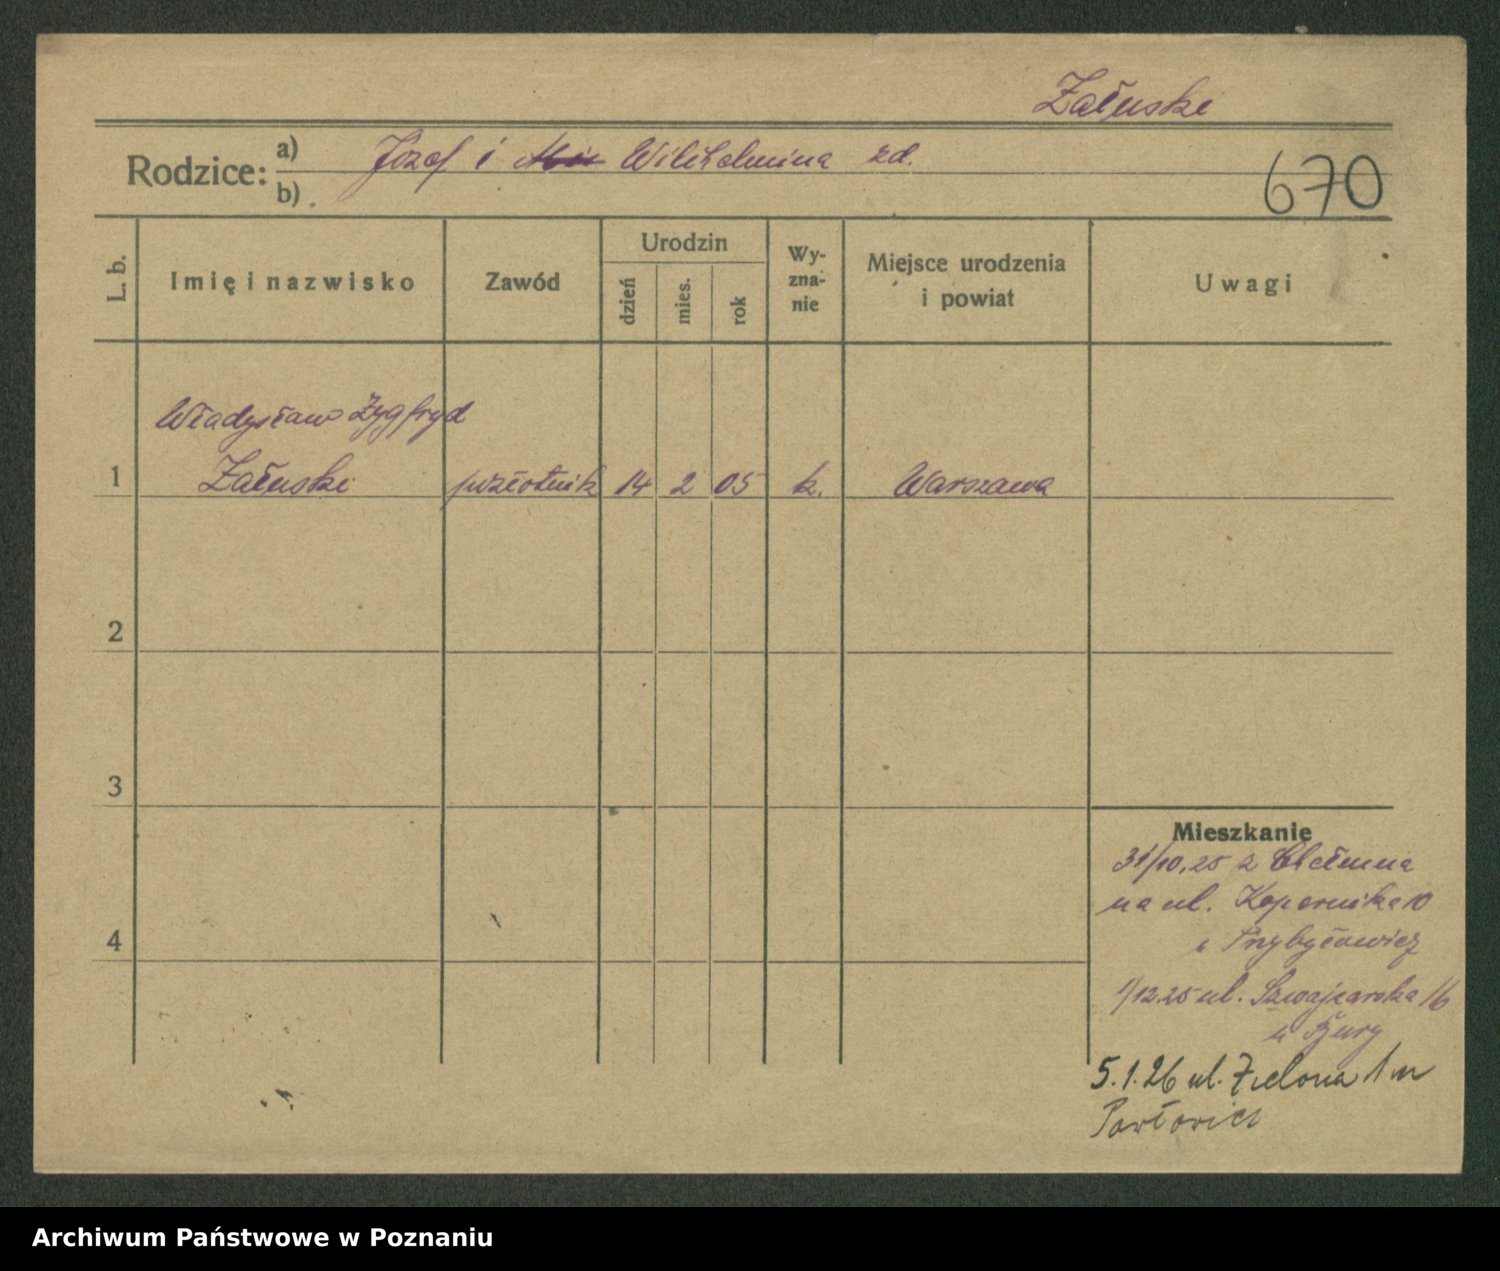 Załuski
Rodzice: a) Józef i Wilihelmina zd.
b)
670
L. b. Imię i nazwisko Zawód Urodzin dzień mies. rok Wy-zna-nie Miejsce urodzenia i powiat Uwagi
Władysław Zygfryd
1 Załuski pozłotnik 14 2 05 k. Warszawa
2
3
4
Mieszkanie
31/10.25 z Chełmna
na ul. Kopernika 10
u Przybyłowicz
1/12.25 ul. Szwajcarska 16
u
5.1.26 ul. Zielona 1 u
Pawłowicz
Archiwum Państwowe w Poznaniu